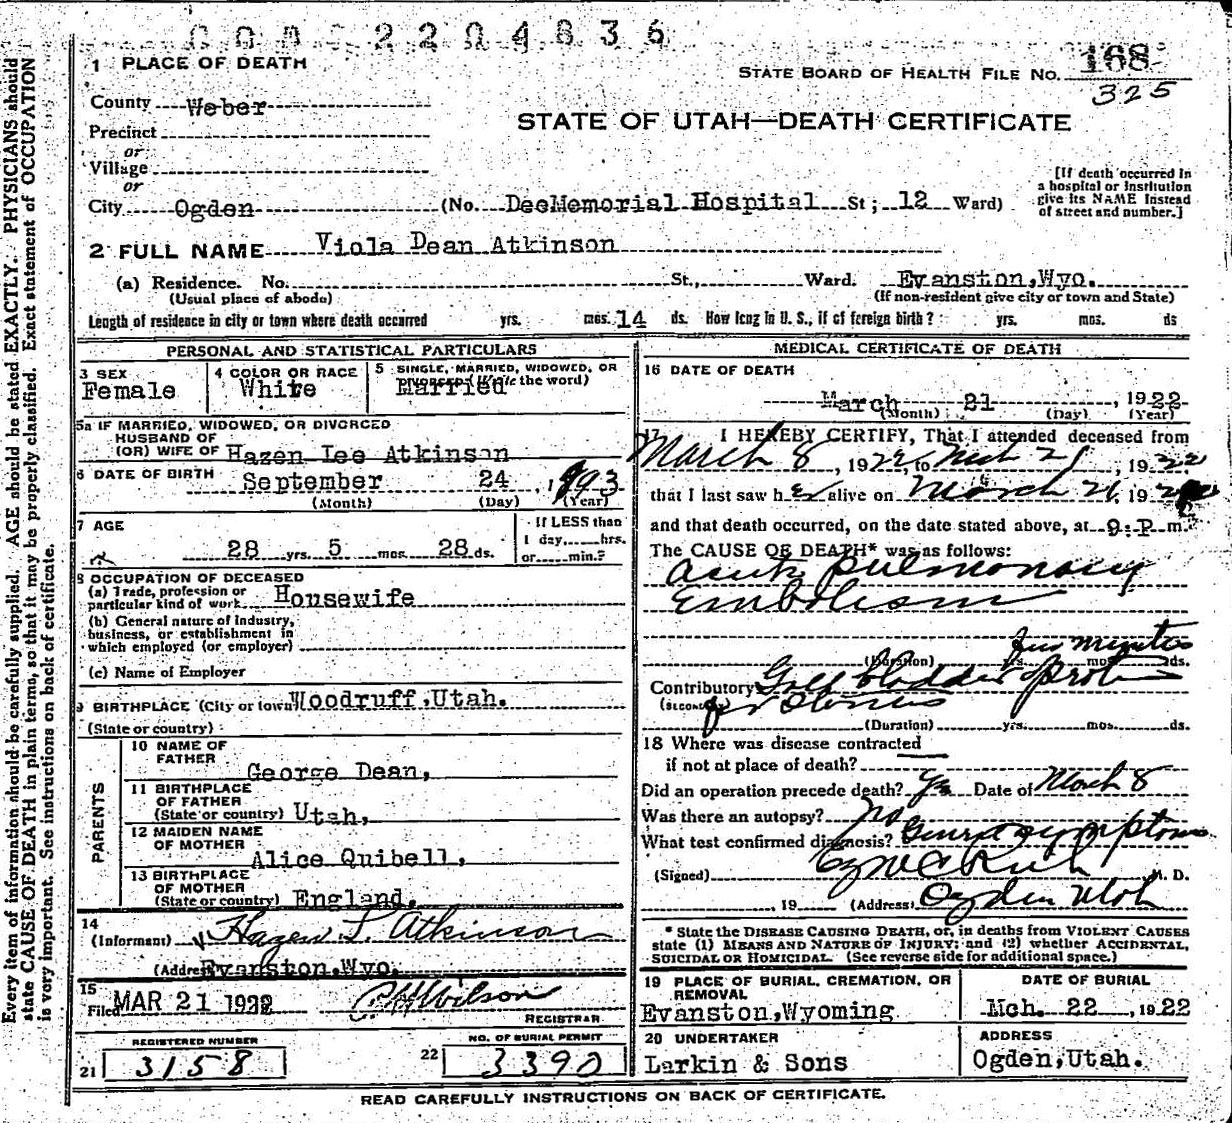 0002204636
1 PLACE OF DEATH
STATE BOARD OF HEALTH FILE NO. 168
325
County Weber
STATE OF UTAH—DEATH CERTIFICATE
Precinct
or
Village
or
City Ogden (No. DeeMemorial Hospital St; 12 Ward)
[If death occurred in a hospital or institution give its NAME instead of street and number.]
2 FULL NAME Viola Dean Atkinson
(a) Residence. No. St., Ward. Evanston,Wyo.
(Usual place of abode) (If non-resident give city or town and State)
Length of residence in city or town where death occurred yrs. mos. 14 ds. How long in U. S., if of foreign birth? yrs. mos. ds
PERSONAL AND STATISTICAL PARTICULARS
3 SEX
Female
4 COLOR OR RACE
White
5 SINGLE, MARRIED, WIDOWED, OR DIVORCED (Write the word)
Married
5a IF MARRIED, WIDOWED, OR DIVORCED
HUSBAND OF
(OR) WIFE OF Hazen Lee Atkinson
6 DATE OF BIRTH September 24, 1893
(Month) (Day) (Year)
7 AGE
28 yrs. 5 mos. 28 ds.
If LESS than
1 day, hrs.
or min.?
8 OCCUPATION OF DECEASED
(a) Trade, profession or
particular kind of work Housewife
(b) General nature of industry,
business, or establishment in
which employed (or employer)
(c) Name of Employer
9 BIRTHPLACE (City or town) Woodruff,Utah.
(State or country)
PARENTS
10 NAME OF
FATHER
George Dean,
11 BIRTHPLACE
OF FATHER
(State or country) Utah,
12 MAIDEN NAME
OF MOTHER
Alice Quibell,
13 BIRTHPLACE
OF MOTHER
(State or country) England,
14
(Informant) Hazen L. Atkinson
(Address) Evanston,Wyo.
15
Filed MAR 21 1922 Wilson
REGISTRAR
REGISTERED NUMBER
21 3158
NO. OF BURIAL PERMIT
22 3390
MEDICAL CERTIFICATE OF DEATH
16 DATE OF DEATH
March 21, 1922
(Month) (Day) (Year)
17 I HEREBY CERTIFY, That I attended deceased from
March 8, 1922, to Mch 21, 1922
that I last saw her alive on March 21, 1922
and that death occurred, on the date stated above, at 9:P m.
The CAUSE OF DEATH* was as follows:
Acute pulmonary
Embolism
few minutes
(Duration) yrs. mos. ds.
Contributory Gall bladder
(SECONDARY) for Stones
(Duration) yrs. mos. ds.
18 Where was disease contracted
if not at place of death?
Did an operation precede death? yes Date of March 8
Was there an autopsy? no
What test confirmed diagnosis? General symptoms
(Signed) M. D.
, 19 (Address) Ogden Utah
* State the DISEASE CAUSING DEATH, or, in deaths from VIOLENT CAUSES
state (1) MEANS AND NATURE OF INJURY; and (2) whether ACCIDENTAL,
SUICIDAL OR HOMICIDAL. (See reverse side for additional space.)
19 PLACE OF BURIAL, CREMATION, OR
REMOVAL
Evanston,Wyoming
DATE OF BURIAL
Mch. 22, 1922
20 UNDERTAKER
Larkin & Sons
ADDRESS
Ogden,Utah.
READ CAREFULLY INSTRUCTIONS ON BACK OF CERTIFICATE.
Every item of information should be carefully supplied. AGE should be stated EXACTLY. PHYSICIANS should
state CAUSE OF DEATH in plain terms, so that it may be properly classified. Exact statement of OCCUPATION
is very important. See instructions on back of certificate.